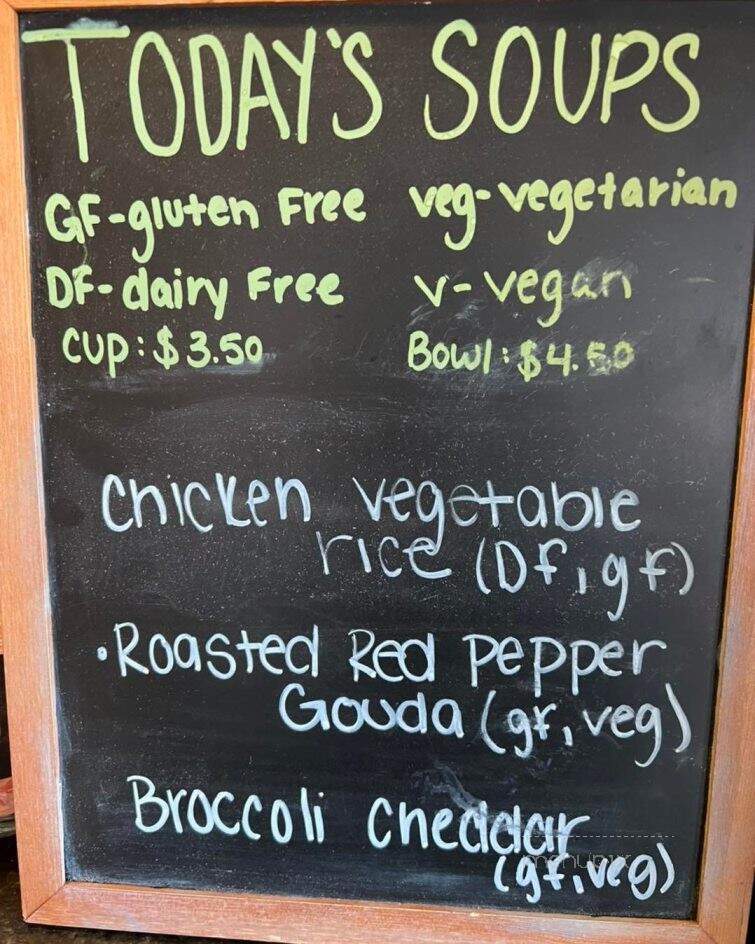 TODAY'S SOUPS
GF-gluten Free veg-vegetarian
DF-dairy Free v-vegan
CUP:$3.50 Bowl:$4.50
Chicken vegetable
rice (Df, gf)
•Roasted Red Pepper
Gouda (gf, veg)
Broccoli cheddar
menupix
(gf, veg)